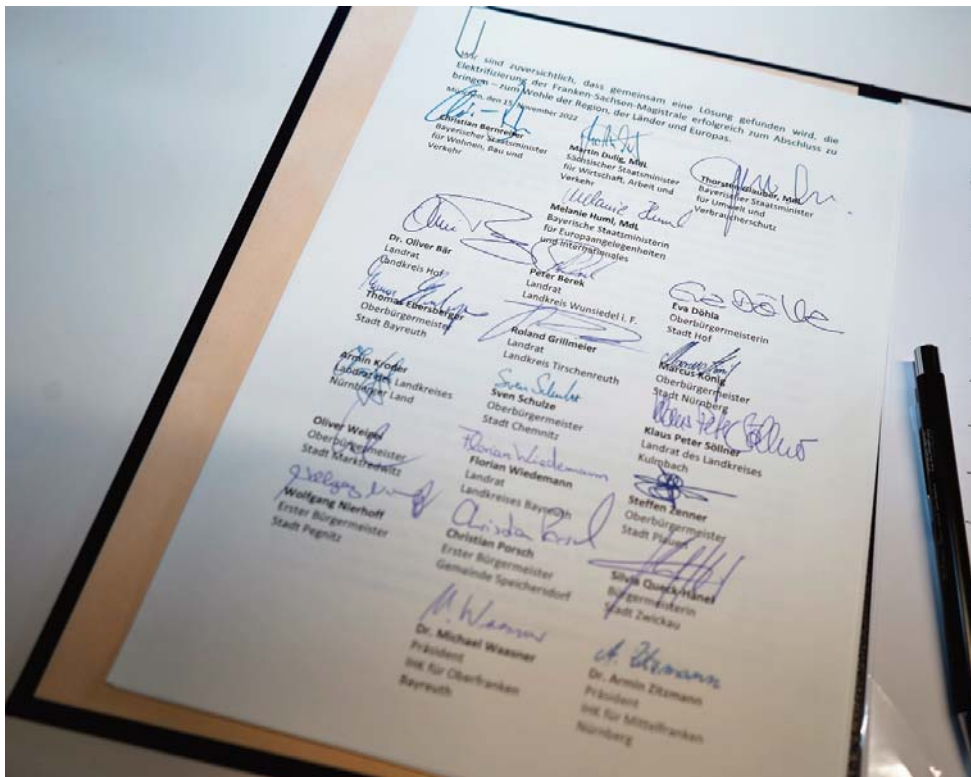 Wir sind zuversichtlich, dass gemeinsam eine Lösung gefunden wird, die
Elektrifizierung der Franken-Sachsen-Magistrale erfolgreich zum Abschluss zu
bringen – zum Wohle der Region, der Länder und Europas.
München, den 15. November 2022
Christian Bernreiter
Bayerischer Staatsminister
für Wohnen, Bau und
Verkehr
Martin Dulig, MdL
Sächsischer Staatsminister
für Wirtschaft, Arbeit und
Verkehr
Thorsten Glauber, MdL
Bayerischer Staatsminister
für Umwelt und
Verbraucherschutz
Melanie Huml
Melanie Huml, MdL
Bayerische Staatsministerin
für Europaangelegenheiten
und Internationales
Dr. Oliver Bär
Landrat
Landkreis Hof
Peter Berek
Landrat
Landkreis Wunsiedel i. F.
Eva Döhla
Eva Döhla
Oberbürgermeisterin
Stadt Hof
Thomas Ebersberger
Oberbürgermeister
Stadt Bayreuth
Roland Grillmeier
Landrat
Landkreis Tirschenreuth
Marcus König
Oberbürgermeister
Stadt Nürnberg
Armin Kroder
Landrat des Landkreises
Nürnberger Land
Sven Schulze
Sven Schulze
Oberbürgermeister
Stadt Chemnitz
Klaus Peter Söllner
Klaus Peter Söllner
Landrat des Landkreises
Kulmbach
Oliver Weigel
Oberbürgermeister
Stadt Marktredwitz
Florian Wiedemann
Florian Wiedemann
Landrat
Landkreises Bayreuth
Steffen Zenner
Oberbürgermeister
Stadt Plauen
Wolfgang Nierhoff
Erster Bürgermeister
Stadt Pegnitz
Christian Porsch
Christian Porsch
Erster Bürgermeister
Gemeinde Speichersdorf
Silvia Queck-Hänel
Bürgermeisterin
Stadt Zwickau
M. Waasner
Dr. Michael Waasner
Präsident
IHK für Oberfranken
Bayreuth
A. Zitzmann
Dr. Armin Zitzmann
Präsident
IHK für Mittelfranken
Nürnberg